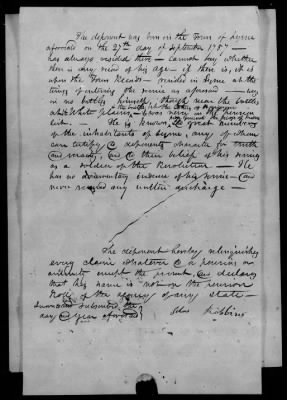 The deponent was born in the Town of Lyme
aforesaid on the 27th day of September 1757 —
has always resided there — cannot say whether
there is any record of his age — if there is, it is
upon the Town Records — resided in Lyme at the
time of entering the service as aforesaid — was
in no battles himself, though near the battle
at White plains, — was never in the
but. He is known to great numbers
of the inhabitants of Lyme, any of whom
can testify to deponents character for truth
and their belief of his having
as a soldier of the Revolution — He
has no documentary evidence of his service — and
never received any written discharge —
The deponent hereby relinquishes
every claim whatever to a pension or
annuity except the present, and declares
that his name is not on the pension
Roll of the agency of any state —
Sworn and subscribed the
day & year aforesaid
Silas Robbins